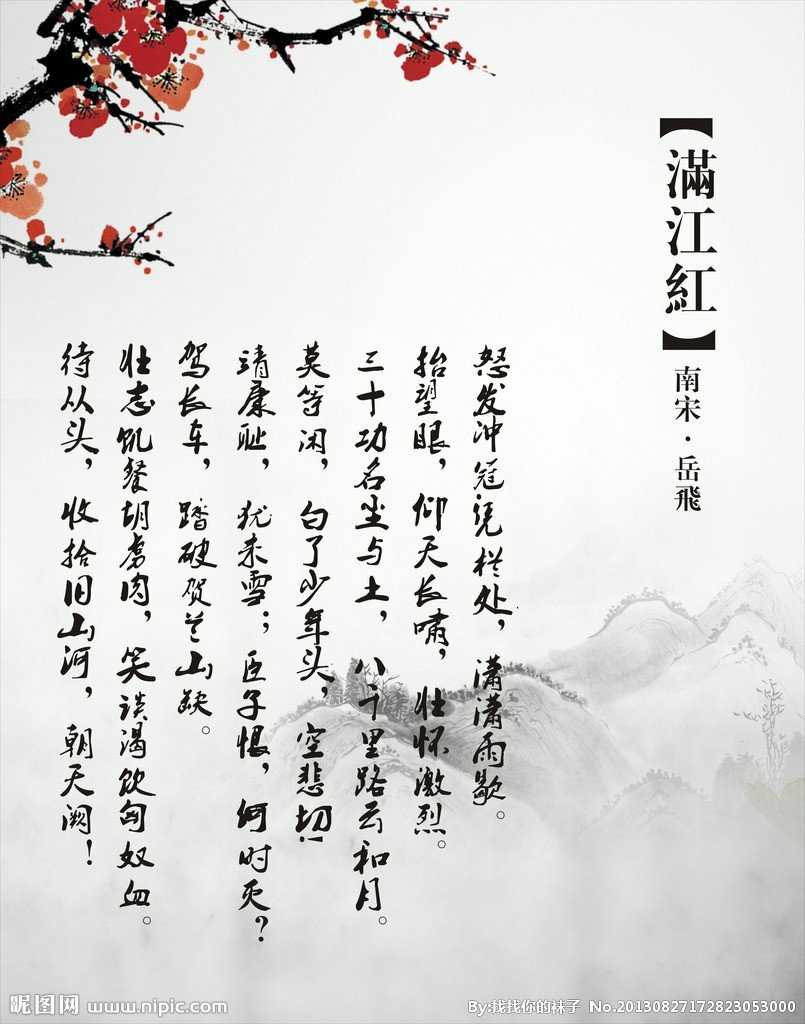 【滿江紅】
南宋·岳飛
怒发冲冠凭栏处，潇潇雨歇。
抬望眼，仰天长啸，壮怀激烈。
三十功名尘与土，八千里路云和月。
莫等闲，白了少年头，空悲切!
靖康耻，犹未雪；臣子恨，何时灭？
驾长车，踏破贺兰山缺。
壮志饥餐胡虏肉，笑谈渴饮匈奴血。
待从头，收拾旧山河，朝天阙！
昵图网 www.nipic.com
By:找找你的袜子 No.20130827172823053000